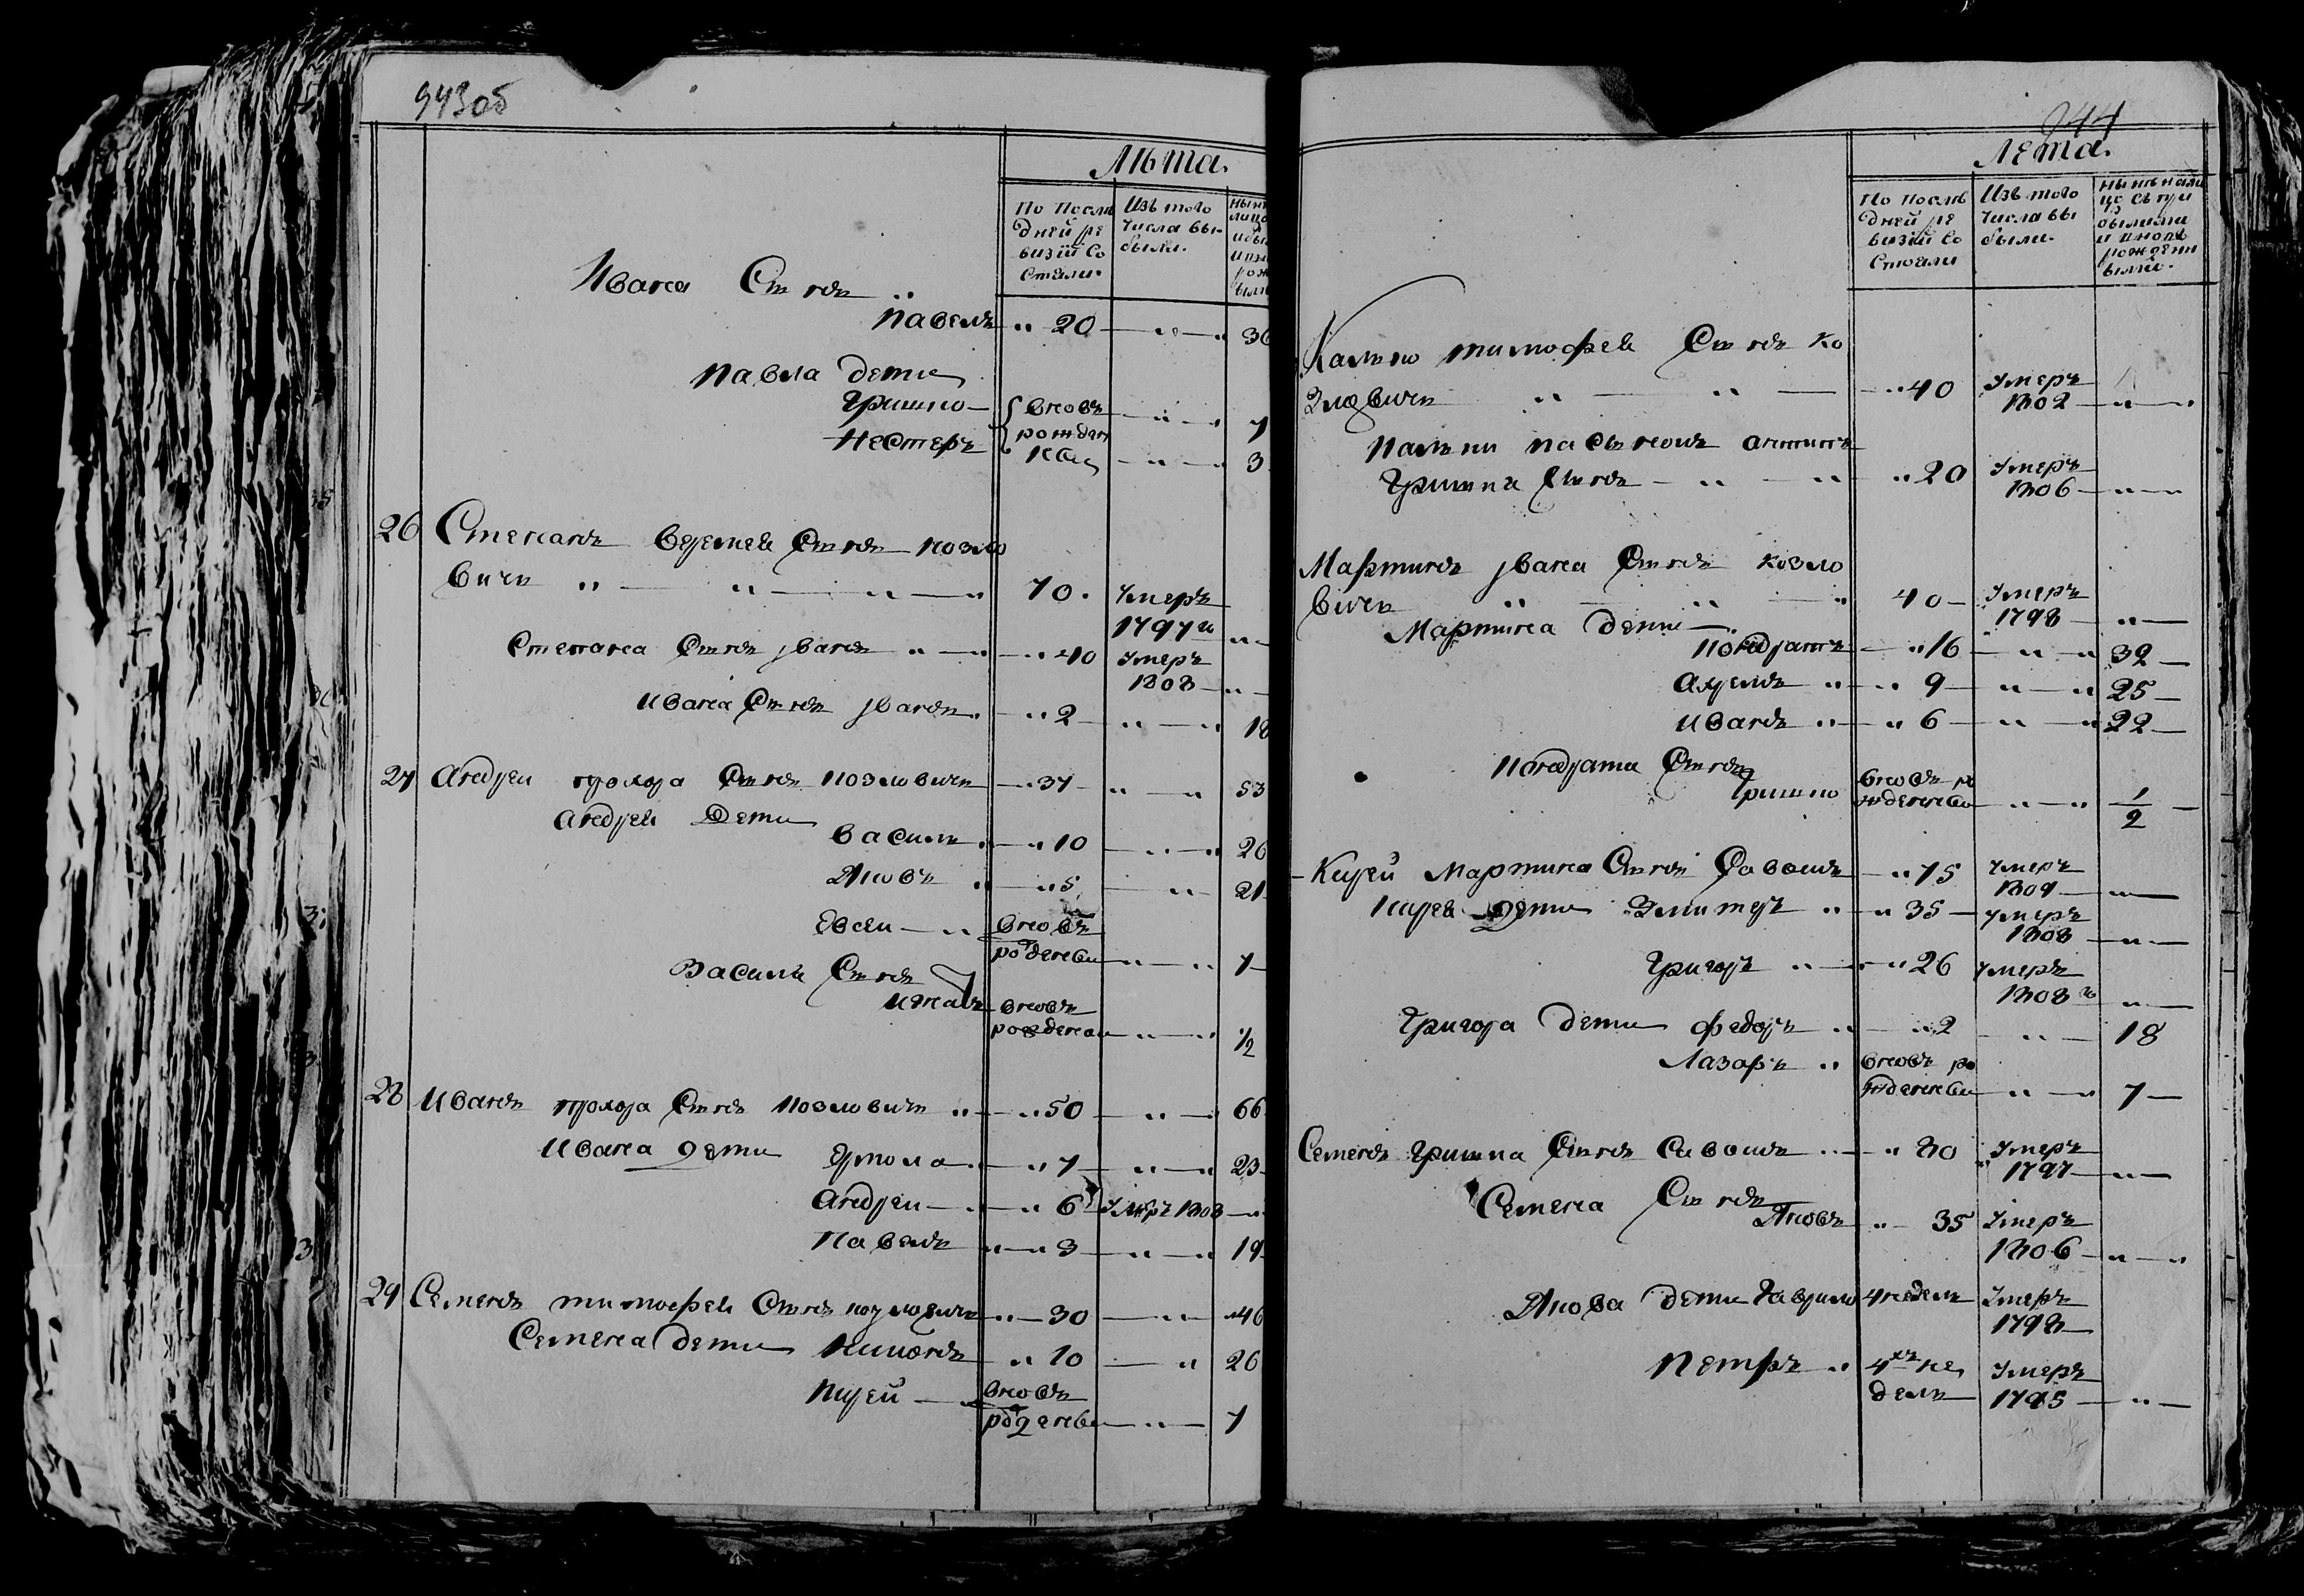 943об
Лѣта.
По послѣ
дней ре
визіи со
стояли.
Изъ того
числа вы
были.
Ивана Сынъ
Павелъ „ 20 — „ — „ 36
Павла дети
Гришко —
вновь — „ — „ 7
Нестеръ
рожден
ныи — „ — „ 3
26 Степанъ Веремея Сынъ Козло
вичъ „ — „ — „ — „ 70. Умеръ
1797го „ —
Степана Сынъ Иванъ „ — „ — „ 40 Умеръ
1808 — „ —
Ивана Сынъ Иванъ. — „ 2 — „ — „ 18
27 Андрей Прохора Сынъ Козловичъ — „ 37 — „ — „ 53
Андрея Дети
Василь — „ 10 — „ — „ 26
Яковъ „ — „ 5 — „ 21
Евсеи — „ вновь
рожденныи — „ — „ 7 —
Василя Сынъ
Игнатъ вновь
рожденныи — „ — „ 1/2
28 Иванъ Прохора Сынъ Козловичъ „ — „ 50 — „ — „ 66
Ивана дети Ермола — „ 7 — „ — „ 23 —
Андреи — „ — „ 6 Умеръ 1808 — „
Павелъ „ — „ 3 — „ — „ 19 —
29 Семенъ Тимофея Сынъ Козловичъ — „ — 30 — „ — „ 46
Семена дети — „ 10 — „ 26
Кирей — вновь
рожденныи — „ — 7
944
Лета.
По послѣ
дней ре
визіи со
стояли
Изъ того
числа вы
были.
Нынѣ нали
цо съ при
былыми
и вновь
рожденн
ыми.
Тимофея Сынъ Ко
зловичъ „ — „ — „ 40 Умеръ
1802 — „ — „
Пасынокъ Антипъ
Гришка Сынъ — „ — „ „ 20 Умеръ
1806 — „ — „
Мартинъ Ивана Сынъ Козло
вичъ „ — „ — „ 40 — Умеръ
1798 — „ —
Мартина дети —
Кондратъ — „ 16 — „ — „ 32 —
„ — „ 9 — „ — „ 25 —
Иванъ „ — „ 6 — „ — „ 22 —
Кондрата Сынъ
Гришко вновь ро
жденныи — „ — „ 1/2 —
Кирей Мартина Сынъ Савошъ — „ 75 Умеръ
1809 — „ —
Кирея дети Змитеръ „ — „ 35 — Умеръ
1808 — „ —
Григоръ „ — „ — „ 26 Умеръ
1808го „ —
Григора дети Федоръ „ — „ 2 „ — 18
Лазаръ „ вновь ро
жденныи — „ — „ 7 —
Семенъ Гришка Сынъ Савошъ „ — „ 80 Умеръ
1797 — „ —
Семена Сынъ
Яковъ „ — 35 Умеръ
1806 — „ — „
Якова дети Гаврило 4 недель Умеръ
1798 —
Петръ „ 4хъ не
дель Умеръ
1795 — „ —